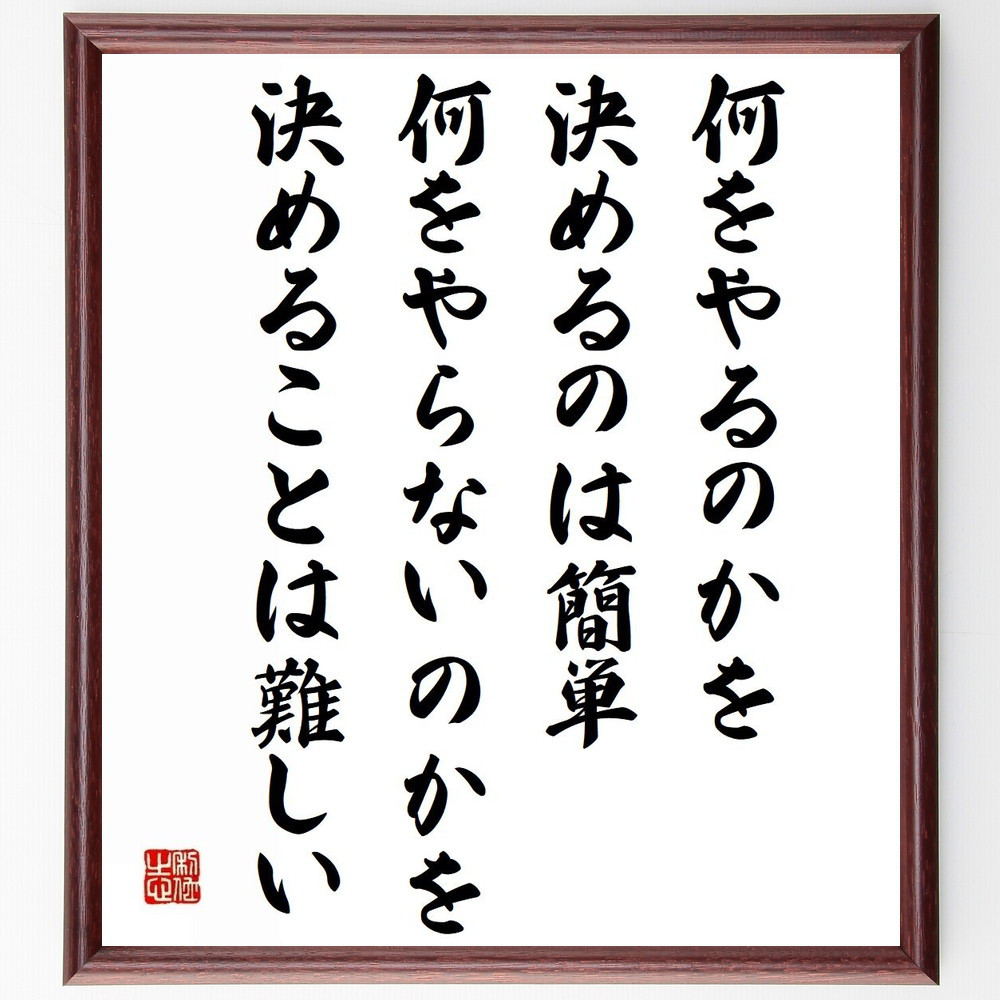 何をやるのかを
決めるのは簡単
何をやらないのかを
決めることは難しい